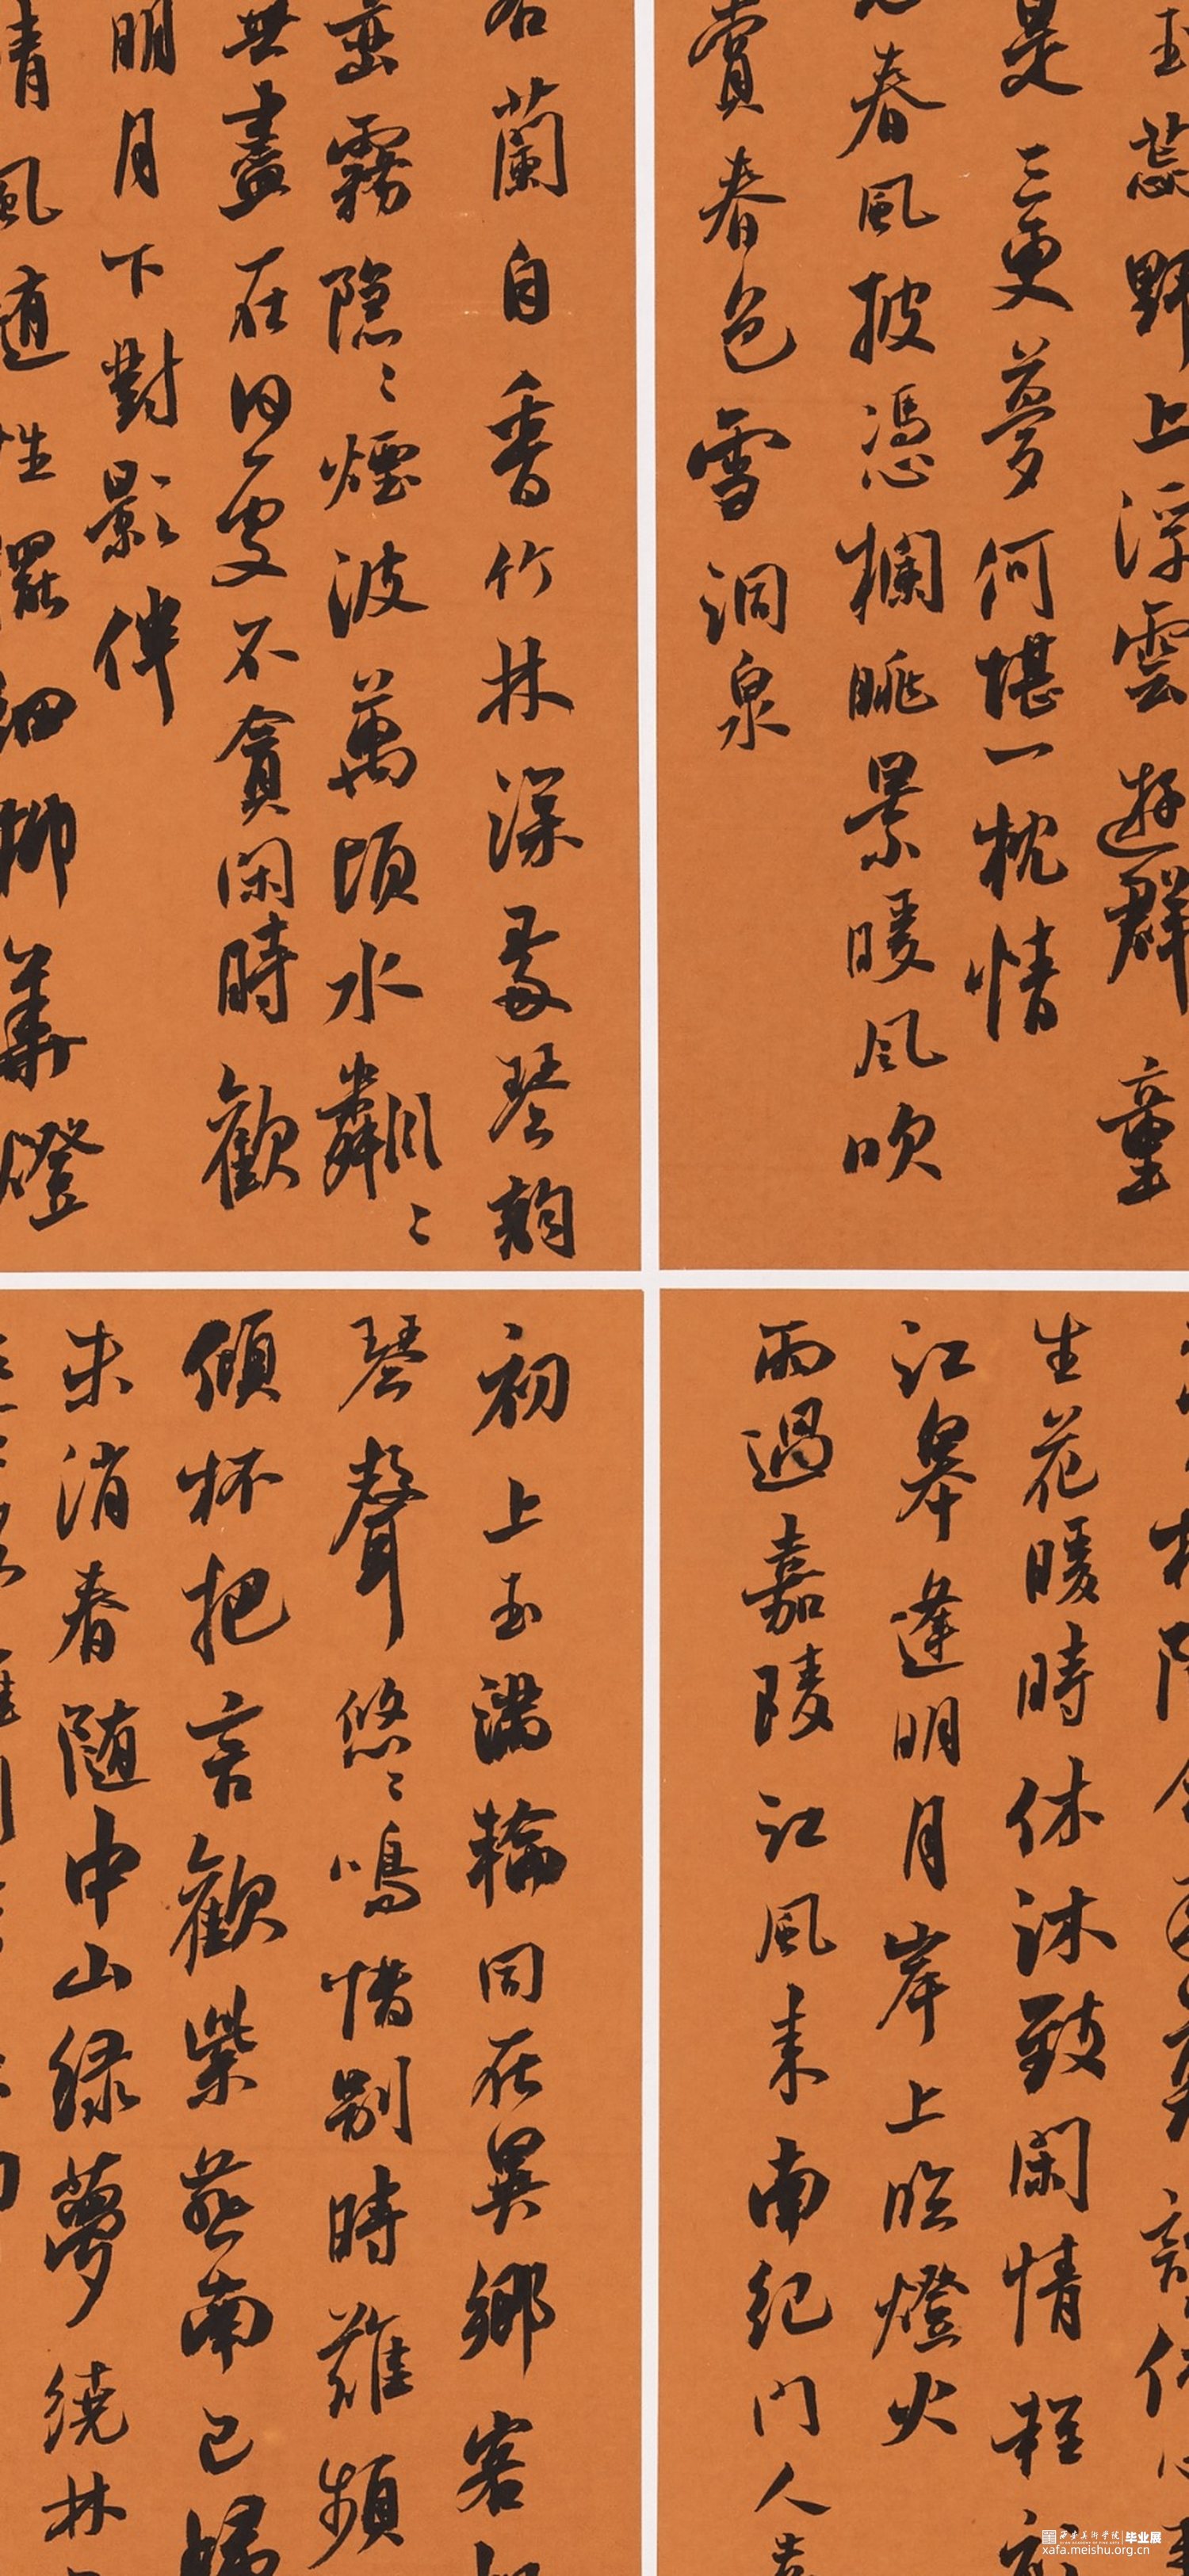 蕊野上浮雲遊群童
是三更夢何堪一枕情
春風披憑欄眺景暖風吹
賞春色雪洞泉
蘭自香竹林深處琴韵
巒霧隐〻煙波萬頃水粼〻
無盡在何處不貪閑時歡
明月下對影伴
清風随性灑細柳華燈
生花暖時休沐致閑情輕
江皋逢明月岸上臨燈火
雨過嘉陵江風来南紀門人
初上玉满輪同在異鄉客
琴聲悠〻鳴惜别時難頻
傾杯把言歡紫燕南已歸
未消春随中山緑夢繞林
西安美術學院 毕业展
xafa.meishu.org.cn